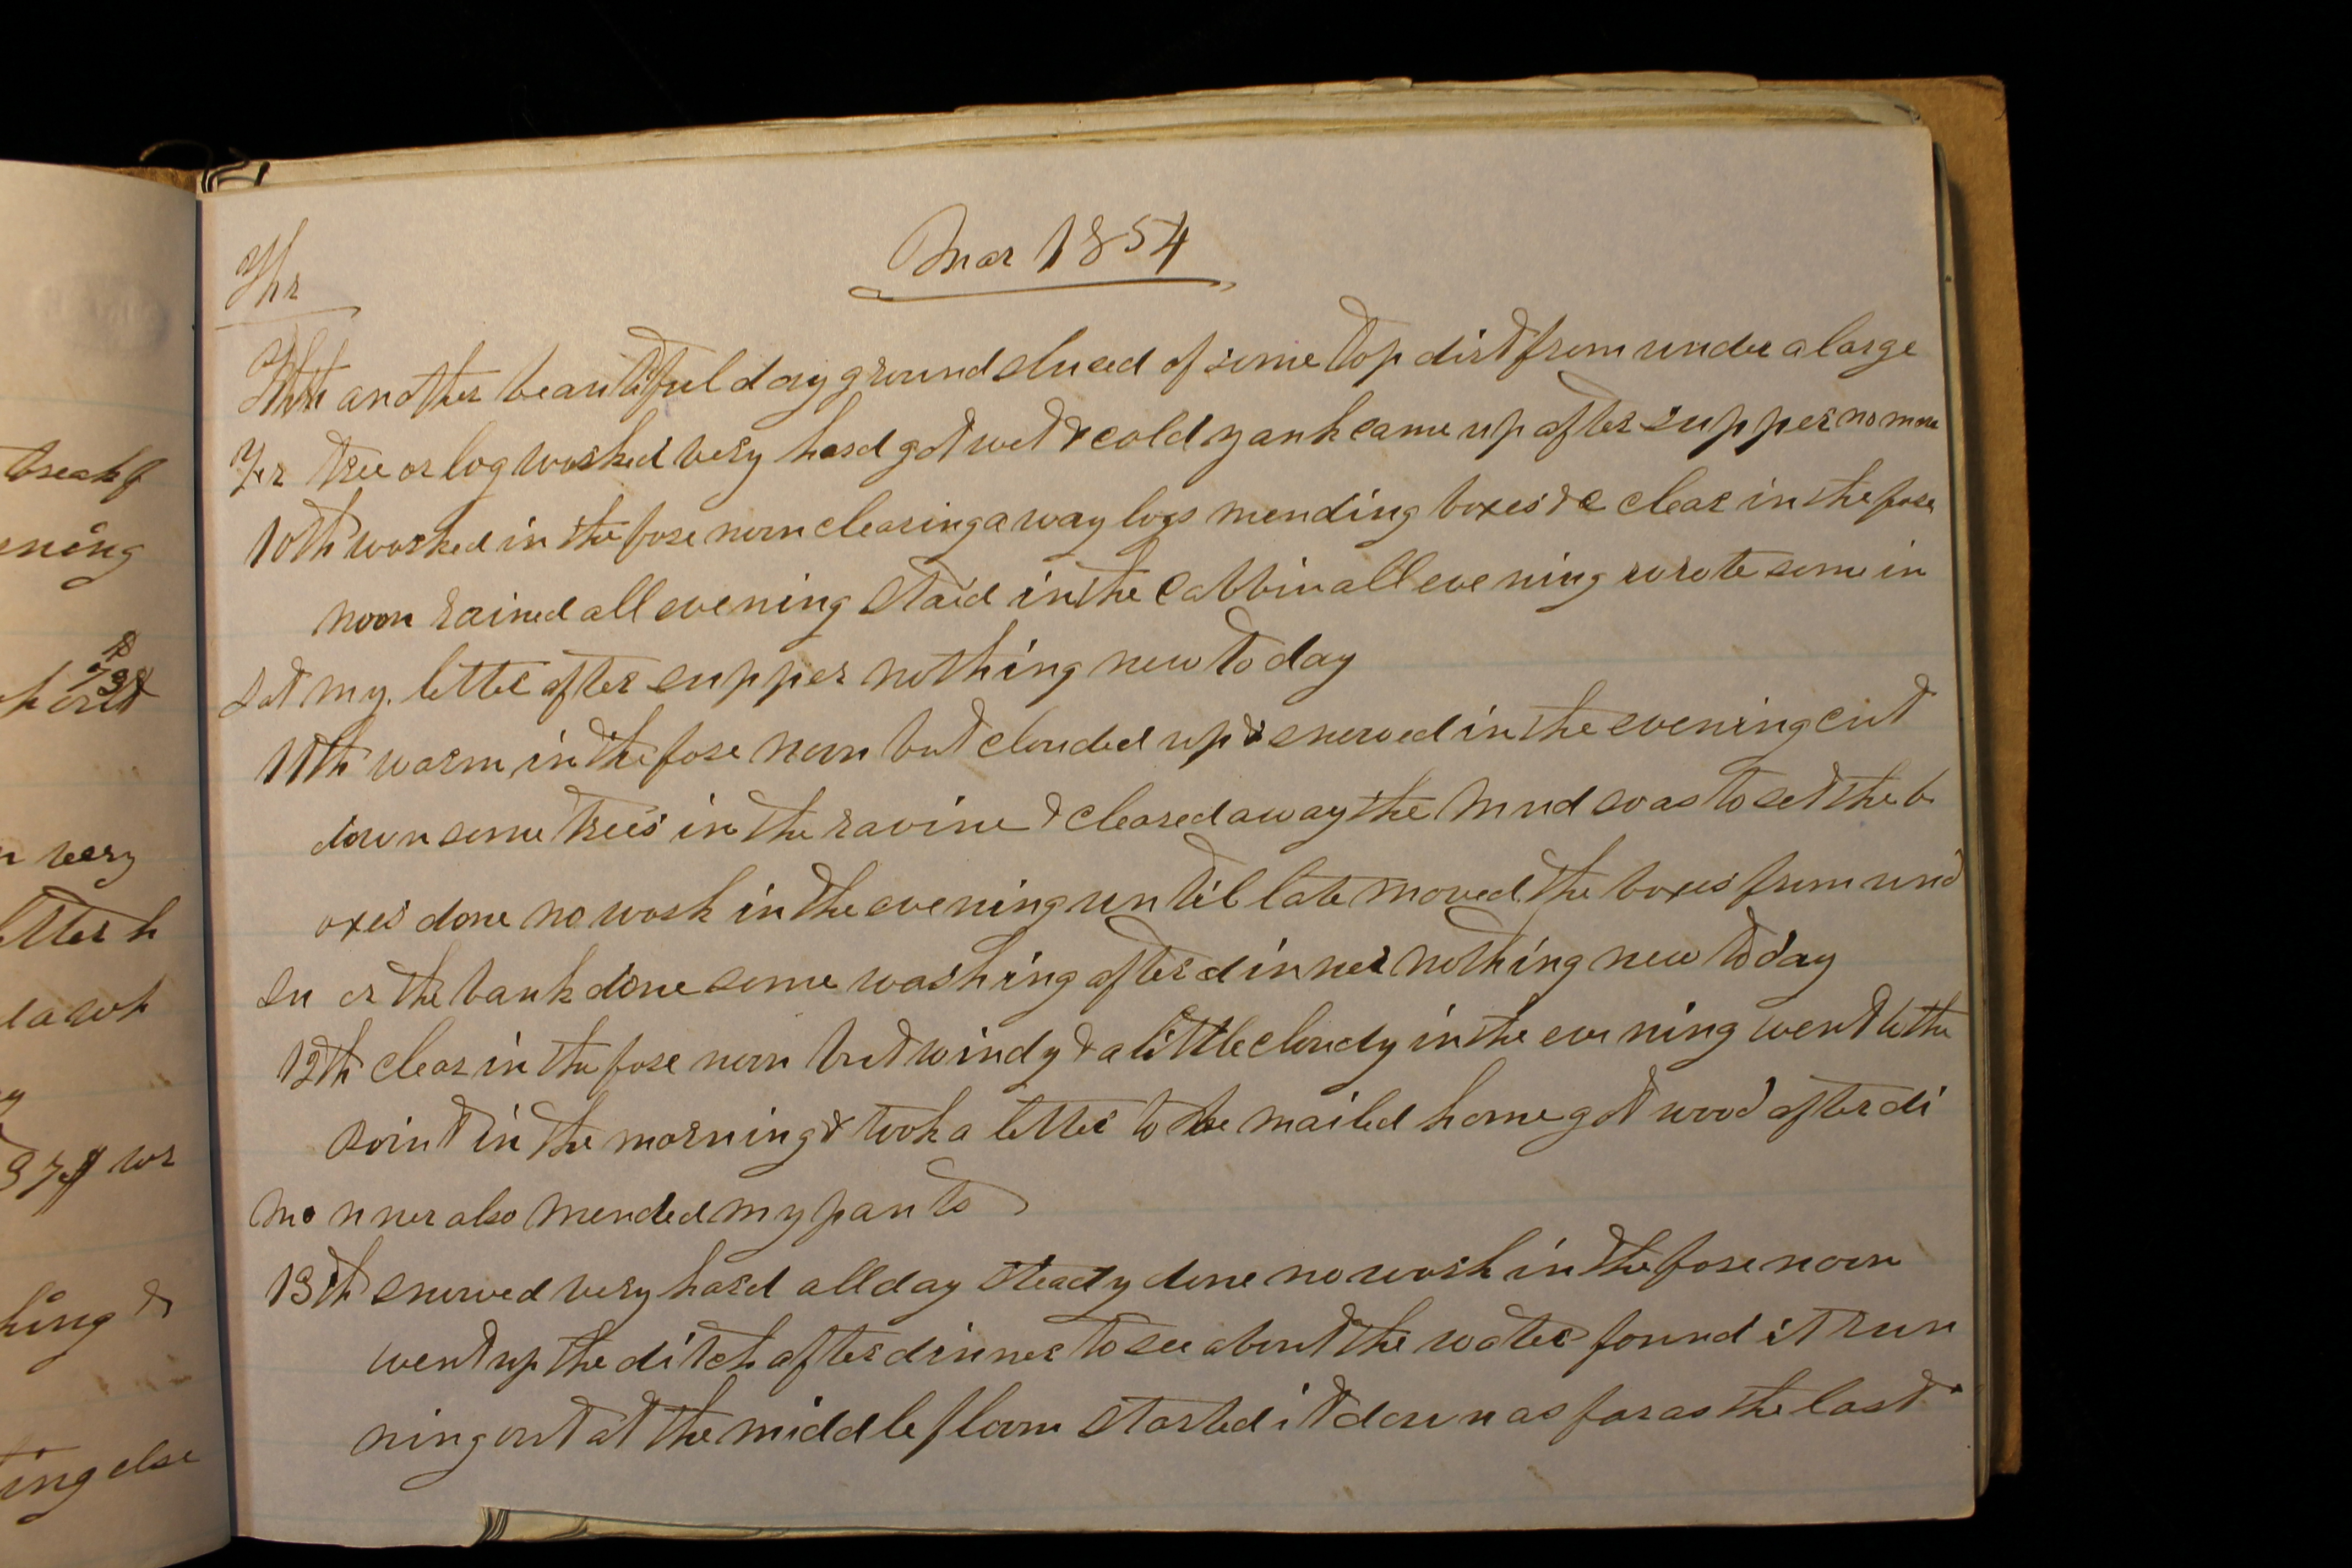 break f
ening
very
etter h
king &
ing else
Mar 1854
Thr
9th another beautiful day ground sluced of some top dirt from under a large
Fr tree or log worked very hard got wet & cold yank came up after supper no more
10th worked in the fore noon clearing away logs mending boxes &c clear in the fore
noon rained all evening staid in the cabbin all evening wrote some in
Sat my letter after supper nothing new to day
11th warm in the fore noon but clouded up & snowed in the evening cut
down some trees in the ravine & cleared away the mud so as to set the b
oxes done no work in the evening until late moved the boxes from und
Su er the bank done some washing after dinner nothing new today
12th clear in the fore noon but windy & a little cloudy in the evening went to the
point in the morning & took a letter to be mailed home got wood after di
Mo nner also mended my pants
13th snowed very hard all day steady done no work in the fore noon
went up the ditch after dinner to see about the water found it run
ning out at the middle floom started it down as far as the last